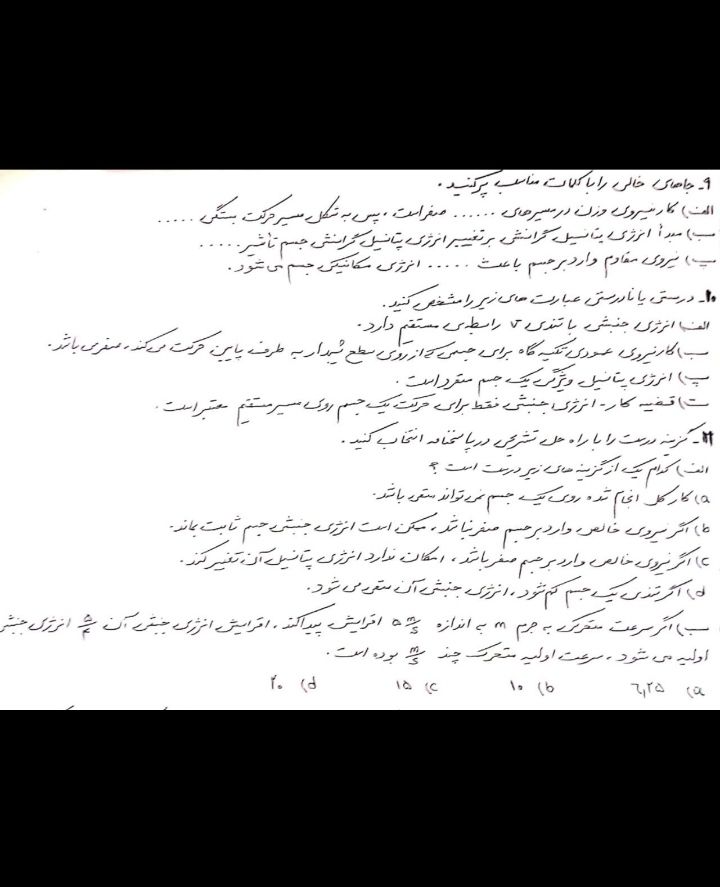 ۹- جاهای خالی را با کلمات مناسب پر کنید.
الف) کار نیروی وزن در مسیرهای ...... صفر است، پس به شکل مسیر حرکت بستگی .....
ب) مبدأ انرژی پتانسیل گرانش بر تغییر انرژی پتانسیل گرانش جسم تأثیر.....
پ) نیروی مقاوم وارد بر جسم باعث ..... انرژی مکانیکی جسم می شود.
۱۰- درستی یا نادرستی عبارت های زیر را مشخص کنید.
الف) انرژی جنبشی با تندی v رابطه ی مستقیم دارد.
ب) کار نیروی عمودی تکیه گاه برای جسمی که از روی سطح شیبدار به طرف پایین حرکت می کند، صفر می باشد.
پ) انرژی پتانسیل ویژگی یک جسم منفرد است.
ت) قضیه کار - انرژی جنبشی فقط برای حرکت یک جسم روی مسیر مستقیم معتبر است.
۱۱- گزینه درست را با راه حل تشریحی در پاسخنامه انتخاب کنید.
الف) کدام یک از گزینه های زیر درست است؟
a) کار کل انجام شده روی یک جسم نمی تواند منفی باشد.
b) اگر نیروی خالص وارد بر جسم صفر نباشد، ممکن است انرژی جنبشی جسم ثابت بماند.
c) اگر نیروی خالص وارد بر جسم صفر باشد، امکان ندارد انرژی پتانسیل آن تغییر کند.
d) اگر تندی یک جسم کم شود، انرژی جنبشی آن منفی می شود.
ب) اگر سرعت متحرکی به جرم m به اندازه ۵ m/s افزایش پیدا کند، افزایش انرژی جنبشی آن ۵/۴ انرژی جنبشی
اولیه می شود، سرعت اولیه متحرک چند m/s بوده است.
a) ۶,۲۵ b) ۱۰ c) ۱۵ d) ۲۰